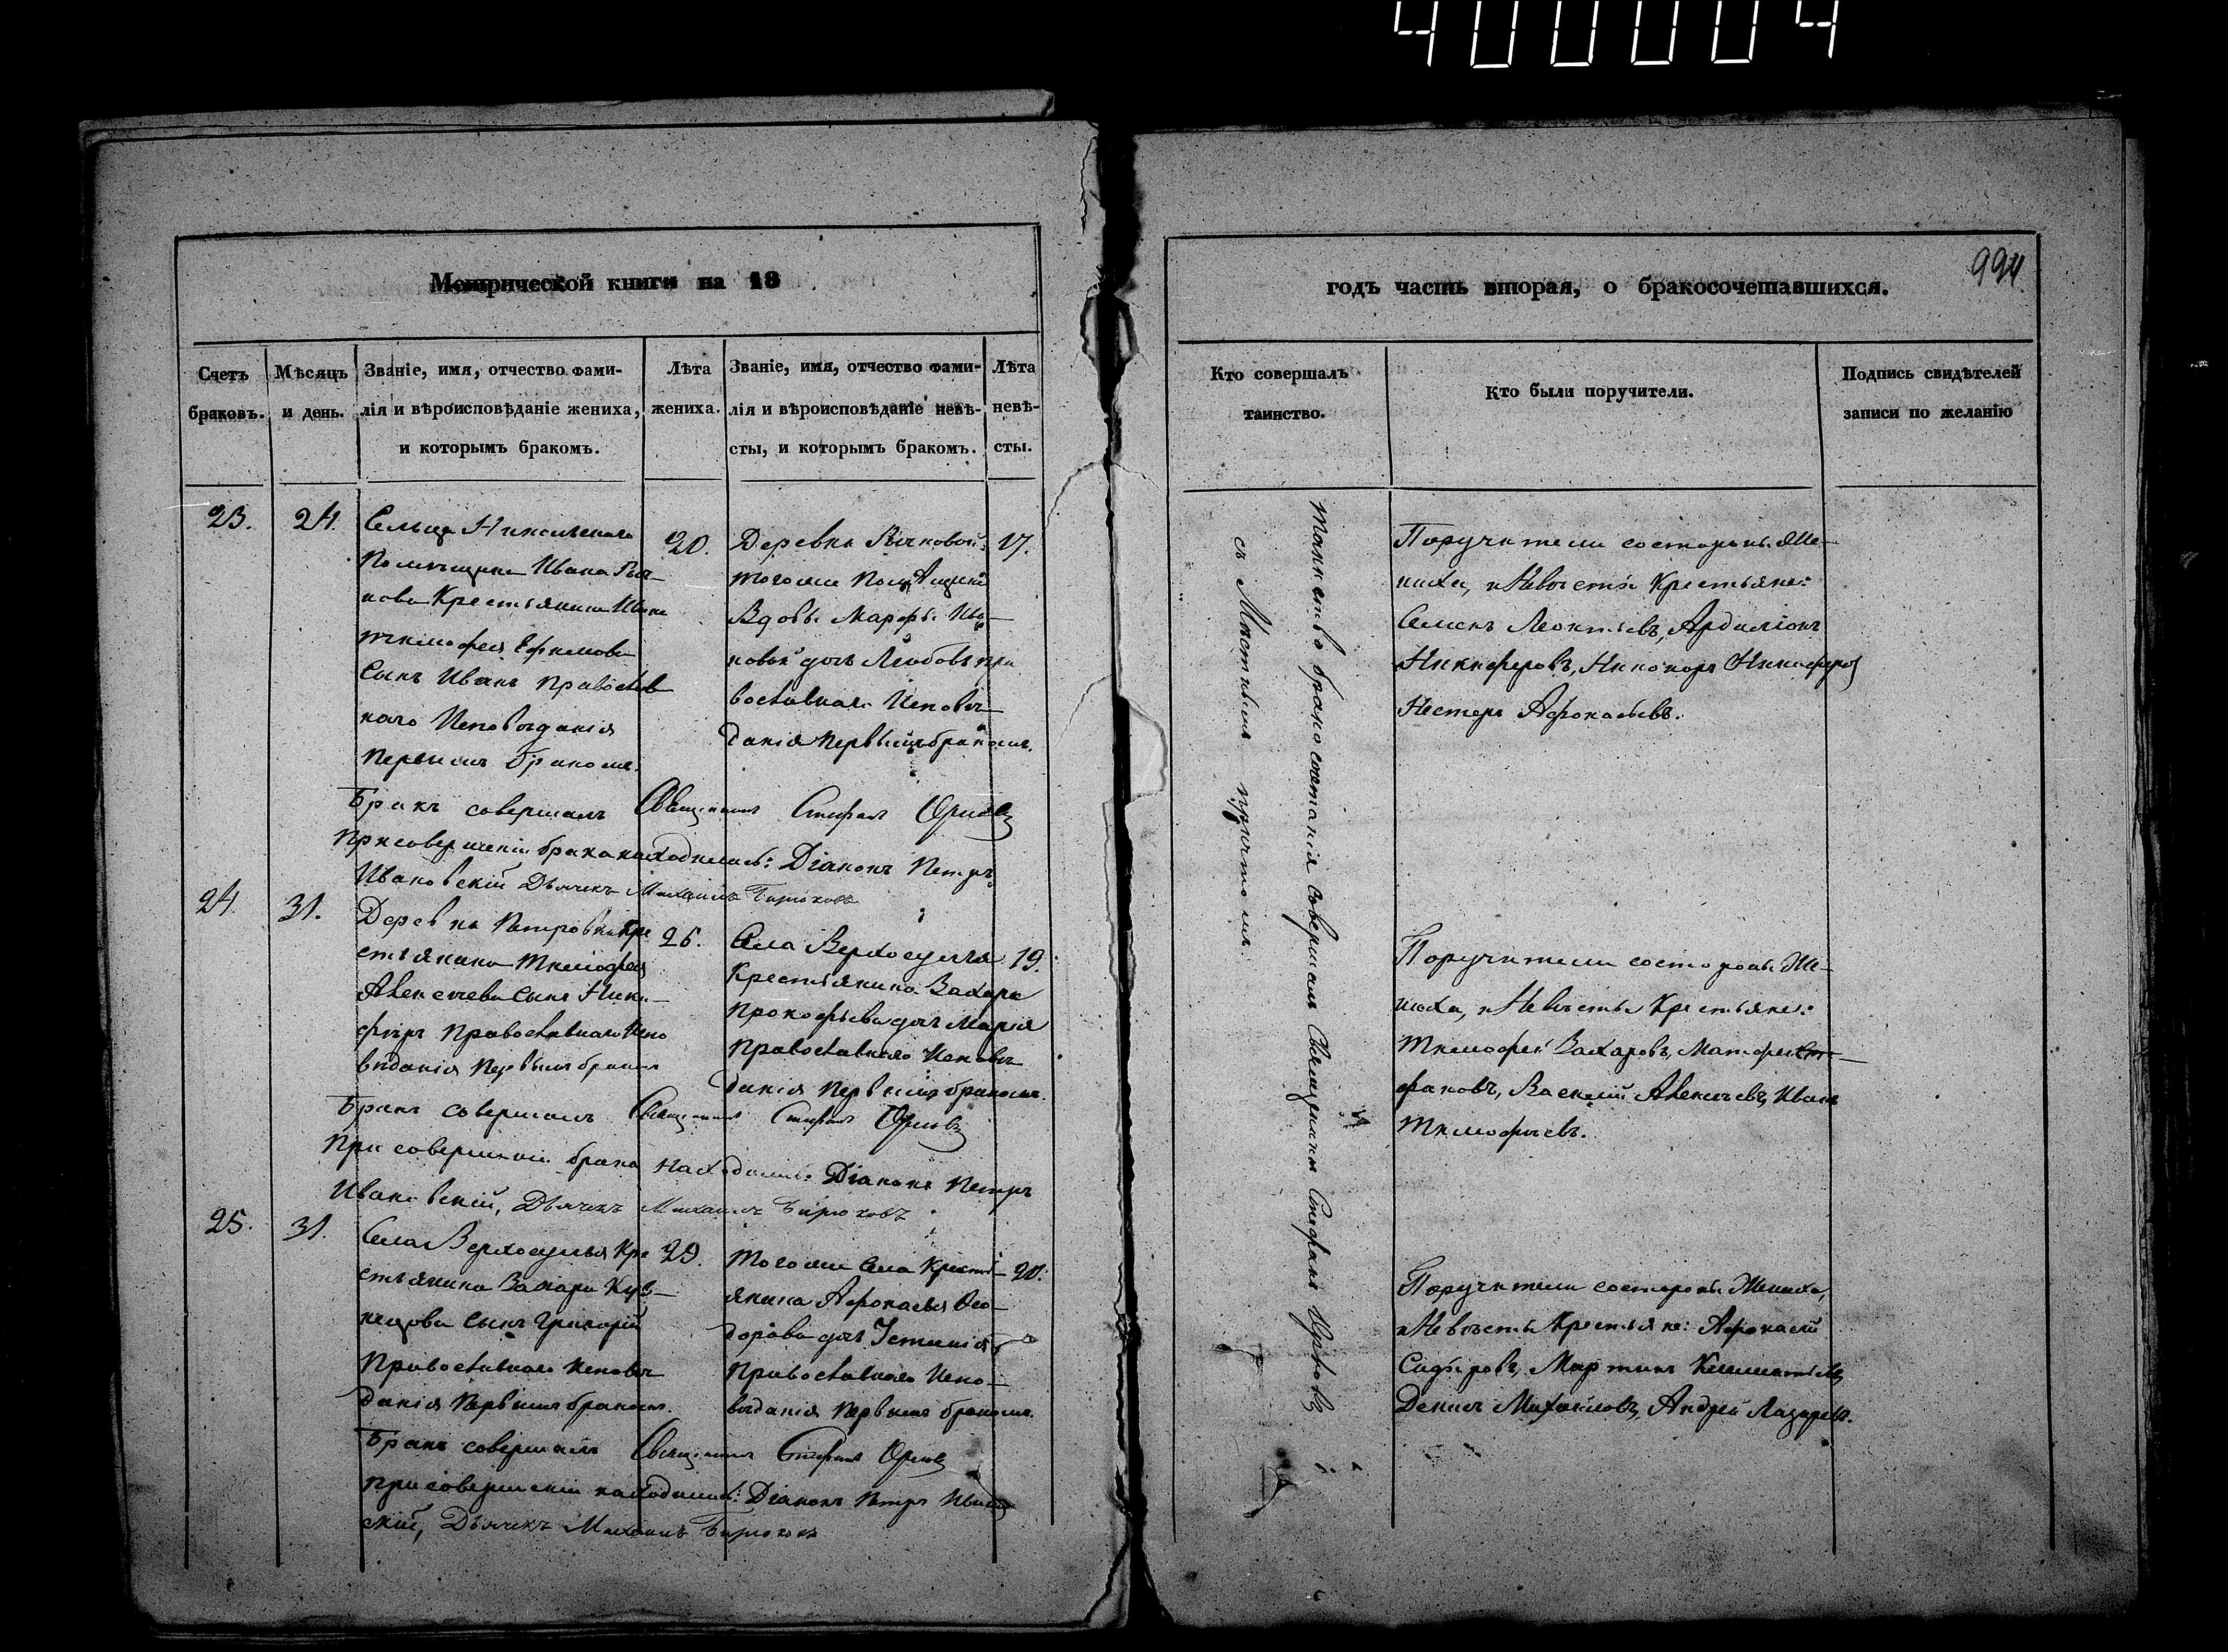 400004
Метрической книги на 18
годъ часть вторая, о бракосочетавшихся.
994.
Счетъ браковъ.
Мѣсяцъ и день.
Званіе, имя, отчество фами-
лія и вѣроисповѣданіе жениха,
и которымъ бракомъ.
Лѣта
жениха.
Званіе, имя, отчество фами-
лія и вѣроисповѣданіе невѣ-
сты, и которымъ бракомъ.
Лѣта
невѣ-
сты.
Кто совершалъ
таинство.
Кто были поручители.
Подпись свидѣтелей
записи по желанію
23.
24.
Сельца Никольскаго
Помѣщика Ивана
Крестьянина
Тимофея Ефимова
Сынъ Иванъ Православ
наго Исповѣданія
Первымъ бракомъ.
20.
Деревни
тогоже
Вдовы Марфы Ива-
новой дочь Любовь пра
вославнаго Исповѣ-
данія Первымъ бракомъ.
17.
Бракъ совершалъ Священникъ Стефанъ Орловъ
При совершеніи брака находились: Діаконъ Петръ
Ивановскій Дьячекъ Михаилъ Бирюковъ
24.
31.
Деревни Петровки Кре
стьянина Тимофея
Алексѣева Сынъ Ники-
форъ Православнаго Испо
вѣданія Первымъ бракомъ
26.
Села Верхосулья
Крестьянина Захара
Прокофьева дочь Марія
Православнаго Исповѣ
данія Первымъ бракомъ.
19.
Бракъ совершалъ Священникъ Стефанъ Орловъ
При совершеніи брака находились: Діаконъ Петръ
Ивановскій, Дьячекъ Михаилъ Бирюковъ
25.
31.
Села Верхосулья Кре
стьянина Захара Куз-
нецова сынъ Григорій
Православнаго Исповѣ
данія Первымъ бракомъ.
29.
Тогоже Села Кресть-
янина Афонасья Ѳео-
дорова дочь Устинія
Православнаго Испо-
вѣданія Первымъ бракомъ.
20.
Бракъ совершалъ Священникъ Стефанъ Орловъ
При совершеніи находились: Діаконъ Петръ Иванов
скій, Дьячекъ Михаилъ Бирюковъ
Таинство бракосочетанія совершалъ Священникъ Стефанъ Орловъ
съ Мѣстнымъ причтомъ.
Поручители состороны Же-
ниха, и Невѣсты Крестьяне:
Семенъ Леонтьевъ, Ардаліонъ
Никифоровъ, Никоноръ Никифоров
Нестеръ Афонасьевъ.
Поручители состороны Же-
ниха, и Невѣсты Крестьяне:
Тимофей Захаровъ, Матфей Сте-
фановъ, Василій Алексѣевъ, Иванъ
Тимофѣевъ.
Поручители состороны Жениха,
и Невѣсты Крестьяне: Афонасій
Сидоровъ, Мартинъ Климентьевъ
Денисъ Михайловъ, Андрей Лазаревъ.